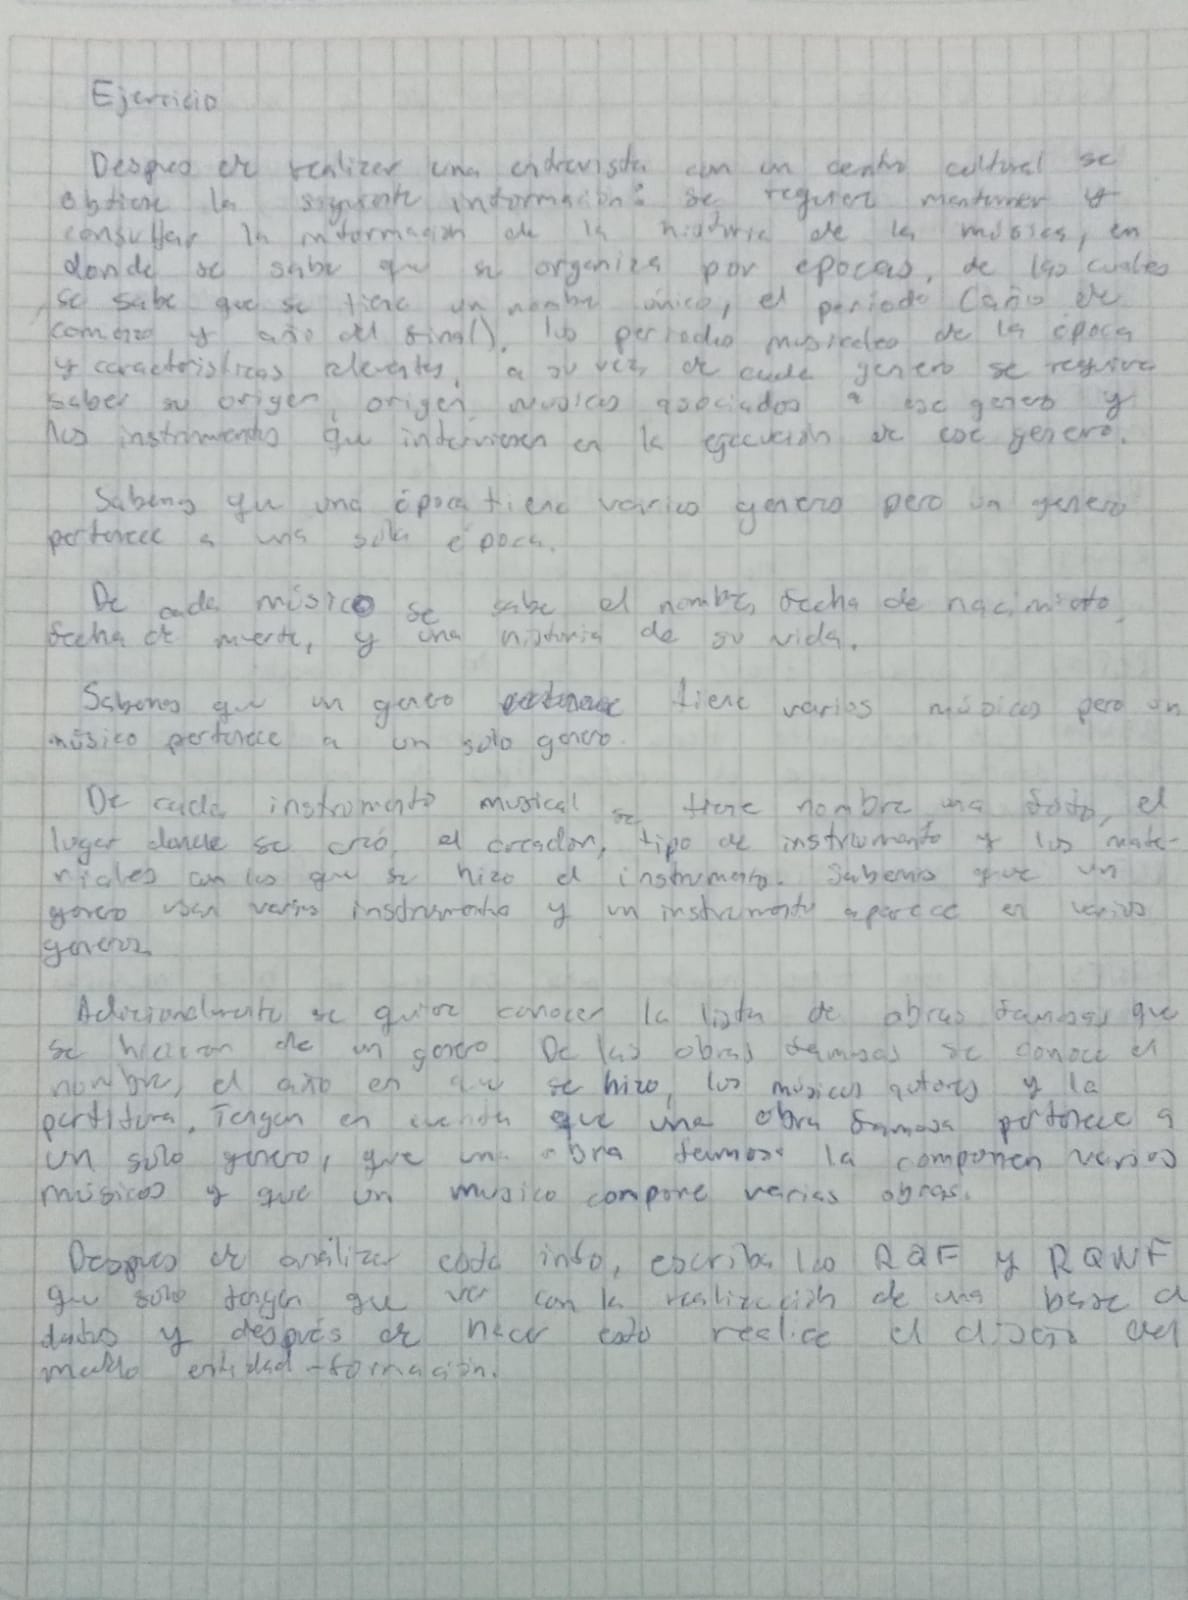 Ejercicio
Despues de realizar una entrevista con un centro cultural se
obtiene la siguiente información: se requiere mantener y
consultar la información de la historia de la música, en
donde se sabe que se organiza por epocas, de las cuales
se sabe que se tiene un nombre único, el periodo (año de
comenzo y año del final), los periodos musicales de la época
y caracteristicas relevantes, a su vez, de cada genero se requiere
saber su origen, origen, musicos asociados a ese genero y
los instrumentos que intervienen en la ejecución de ese genero.
Sabemos que una época tiene varios genero pero un genero
pertenece a una sola época.
De cada músico se sabe el nombre, fecha de nacimiento,
fecha de muerte, y una historia de su vida.
Sabemos que un genero tiene varios músicos pero un
músico pertenece a un solo genero.
De cada instrumento musical se tiene nombre una foto, el
lugar donde se creó, el creador, tipo de instrumento y los mate-
riales con los que se hizo el instrumento. Sabemos que un
genero usan varios instrumentos y un instrumento aparece en varios
generos
Adicionalmente se quiere conocer la lista de obras famosas que
se hicieron de un genero. De las obras famosas se conoce el
nombre, el año en que se hizo, los músicos autores y la
partitura. Tengan en cuenta que una obra famosa pertenece a
un solo genero, que una obra famosa la componen varios
músicos y que un musico compone varias obras.
Despues de analizar cada info, escriba los RQF y RQNF
que solo tengan que ver con la realización de una base d
datos y después de hacer esto realice el diseño del
modelo entidad-formación.